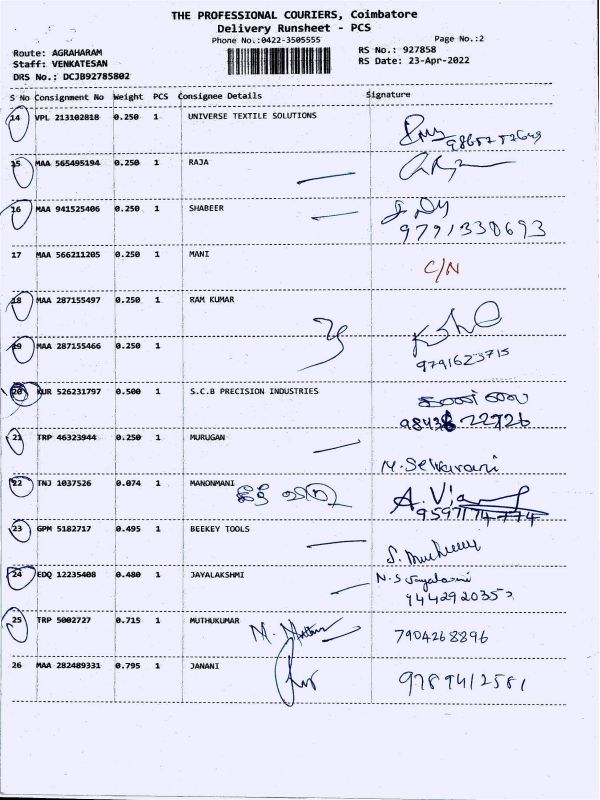 THE PROFESSIONAL COURIERS, Coimbatore
Delivery Runsheet - PCS
Phone No.:0422-3505555
Page No.:2
Route: AGRAHARAM
RS No.: 927858
Staff: VENKATESAN
RS Date: 23-Apr-2022
DRS No.: DCJB92785802
S No Consignment No Weight PCS Consignee Details Signature
14 VPL 213102818 0.250 1 UNIVERSE TEXTILE SOLUTIONS
15 MAA 565495194 0.250 1 RAJA
16 MAA 941525406 0.250 1 SHABEER
9791330693
17 MAA 566211205 0.250 1 MANI C/N
18 MAA 287155497 0.250 1 RAM KUMAR
19 MAA 287155466 0.250 1
9791623715
20 KUR 526231797 0.500 1 S.C.B PRECISION INDUSTRIES
22726
21 TRP 46323944 0.250 1 MURUGAN
M. Selvarani
22 TNJ 1037526 0.074 1 MANONMANI
9597174774
23 GPM 5182717 0.495 1 BEEKEY TOOLS
24 EDQ 12235408 0.480 1 JAYALAKSHMI N.S Jayalaxmi
25 TRP 5002727 0.715 1 MUTHUKUMAR 7904268896
26 MAA 282489331 0.795 1 JANANI 9789412581